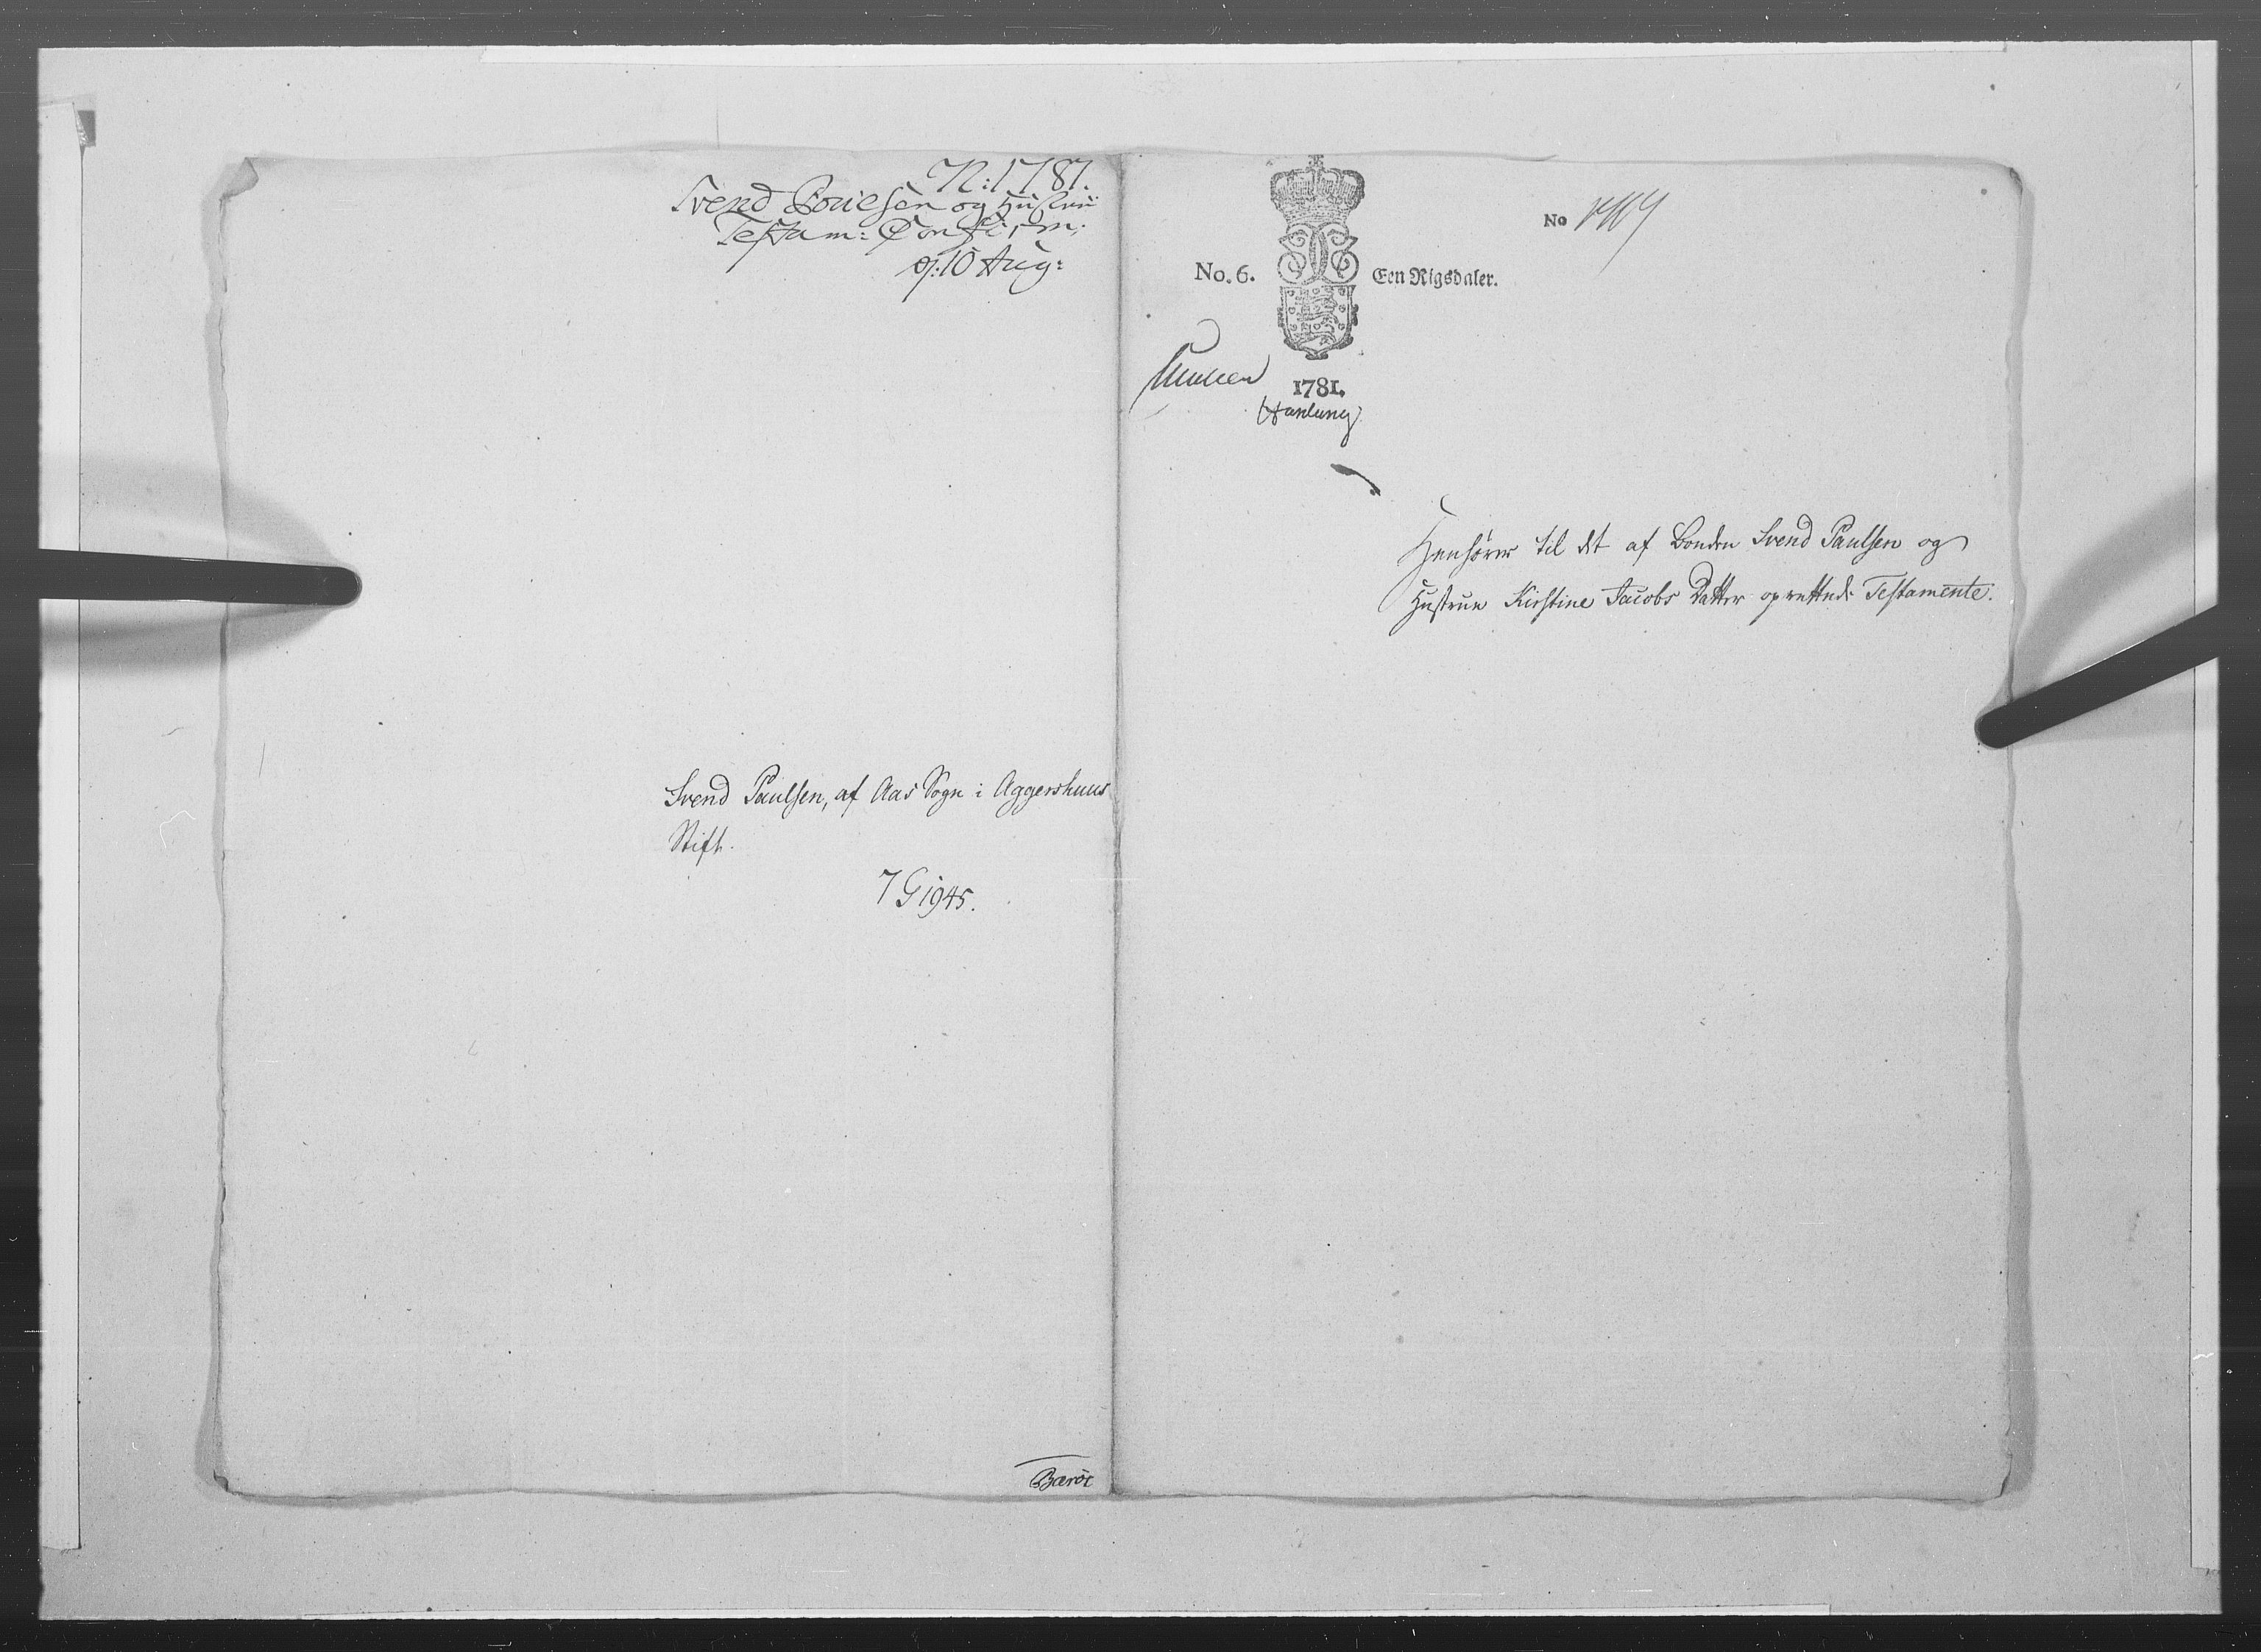 N: 1781.
Svend Poulsen og Hustrue
Testam: Confirm:
d: 10 Aug:
Svend Paulsen, af Aas Sogn i Aggershuus
Stift.
7 G 1945.
Barøe
No
No. 6.
Een Rigsdaler.
1781.
Henhører til det af Bonden Svend Paulsen og
Hustrue Kirstine Jacobs Datter oprettede Testamente.